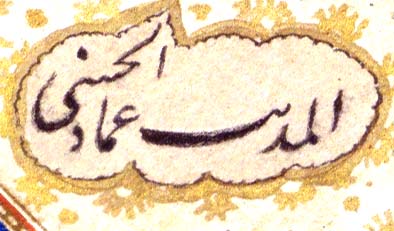 المذنب عماد الحسنی